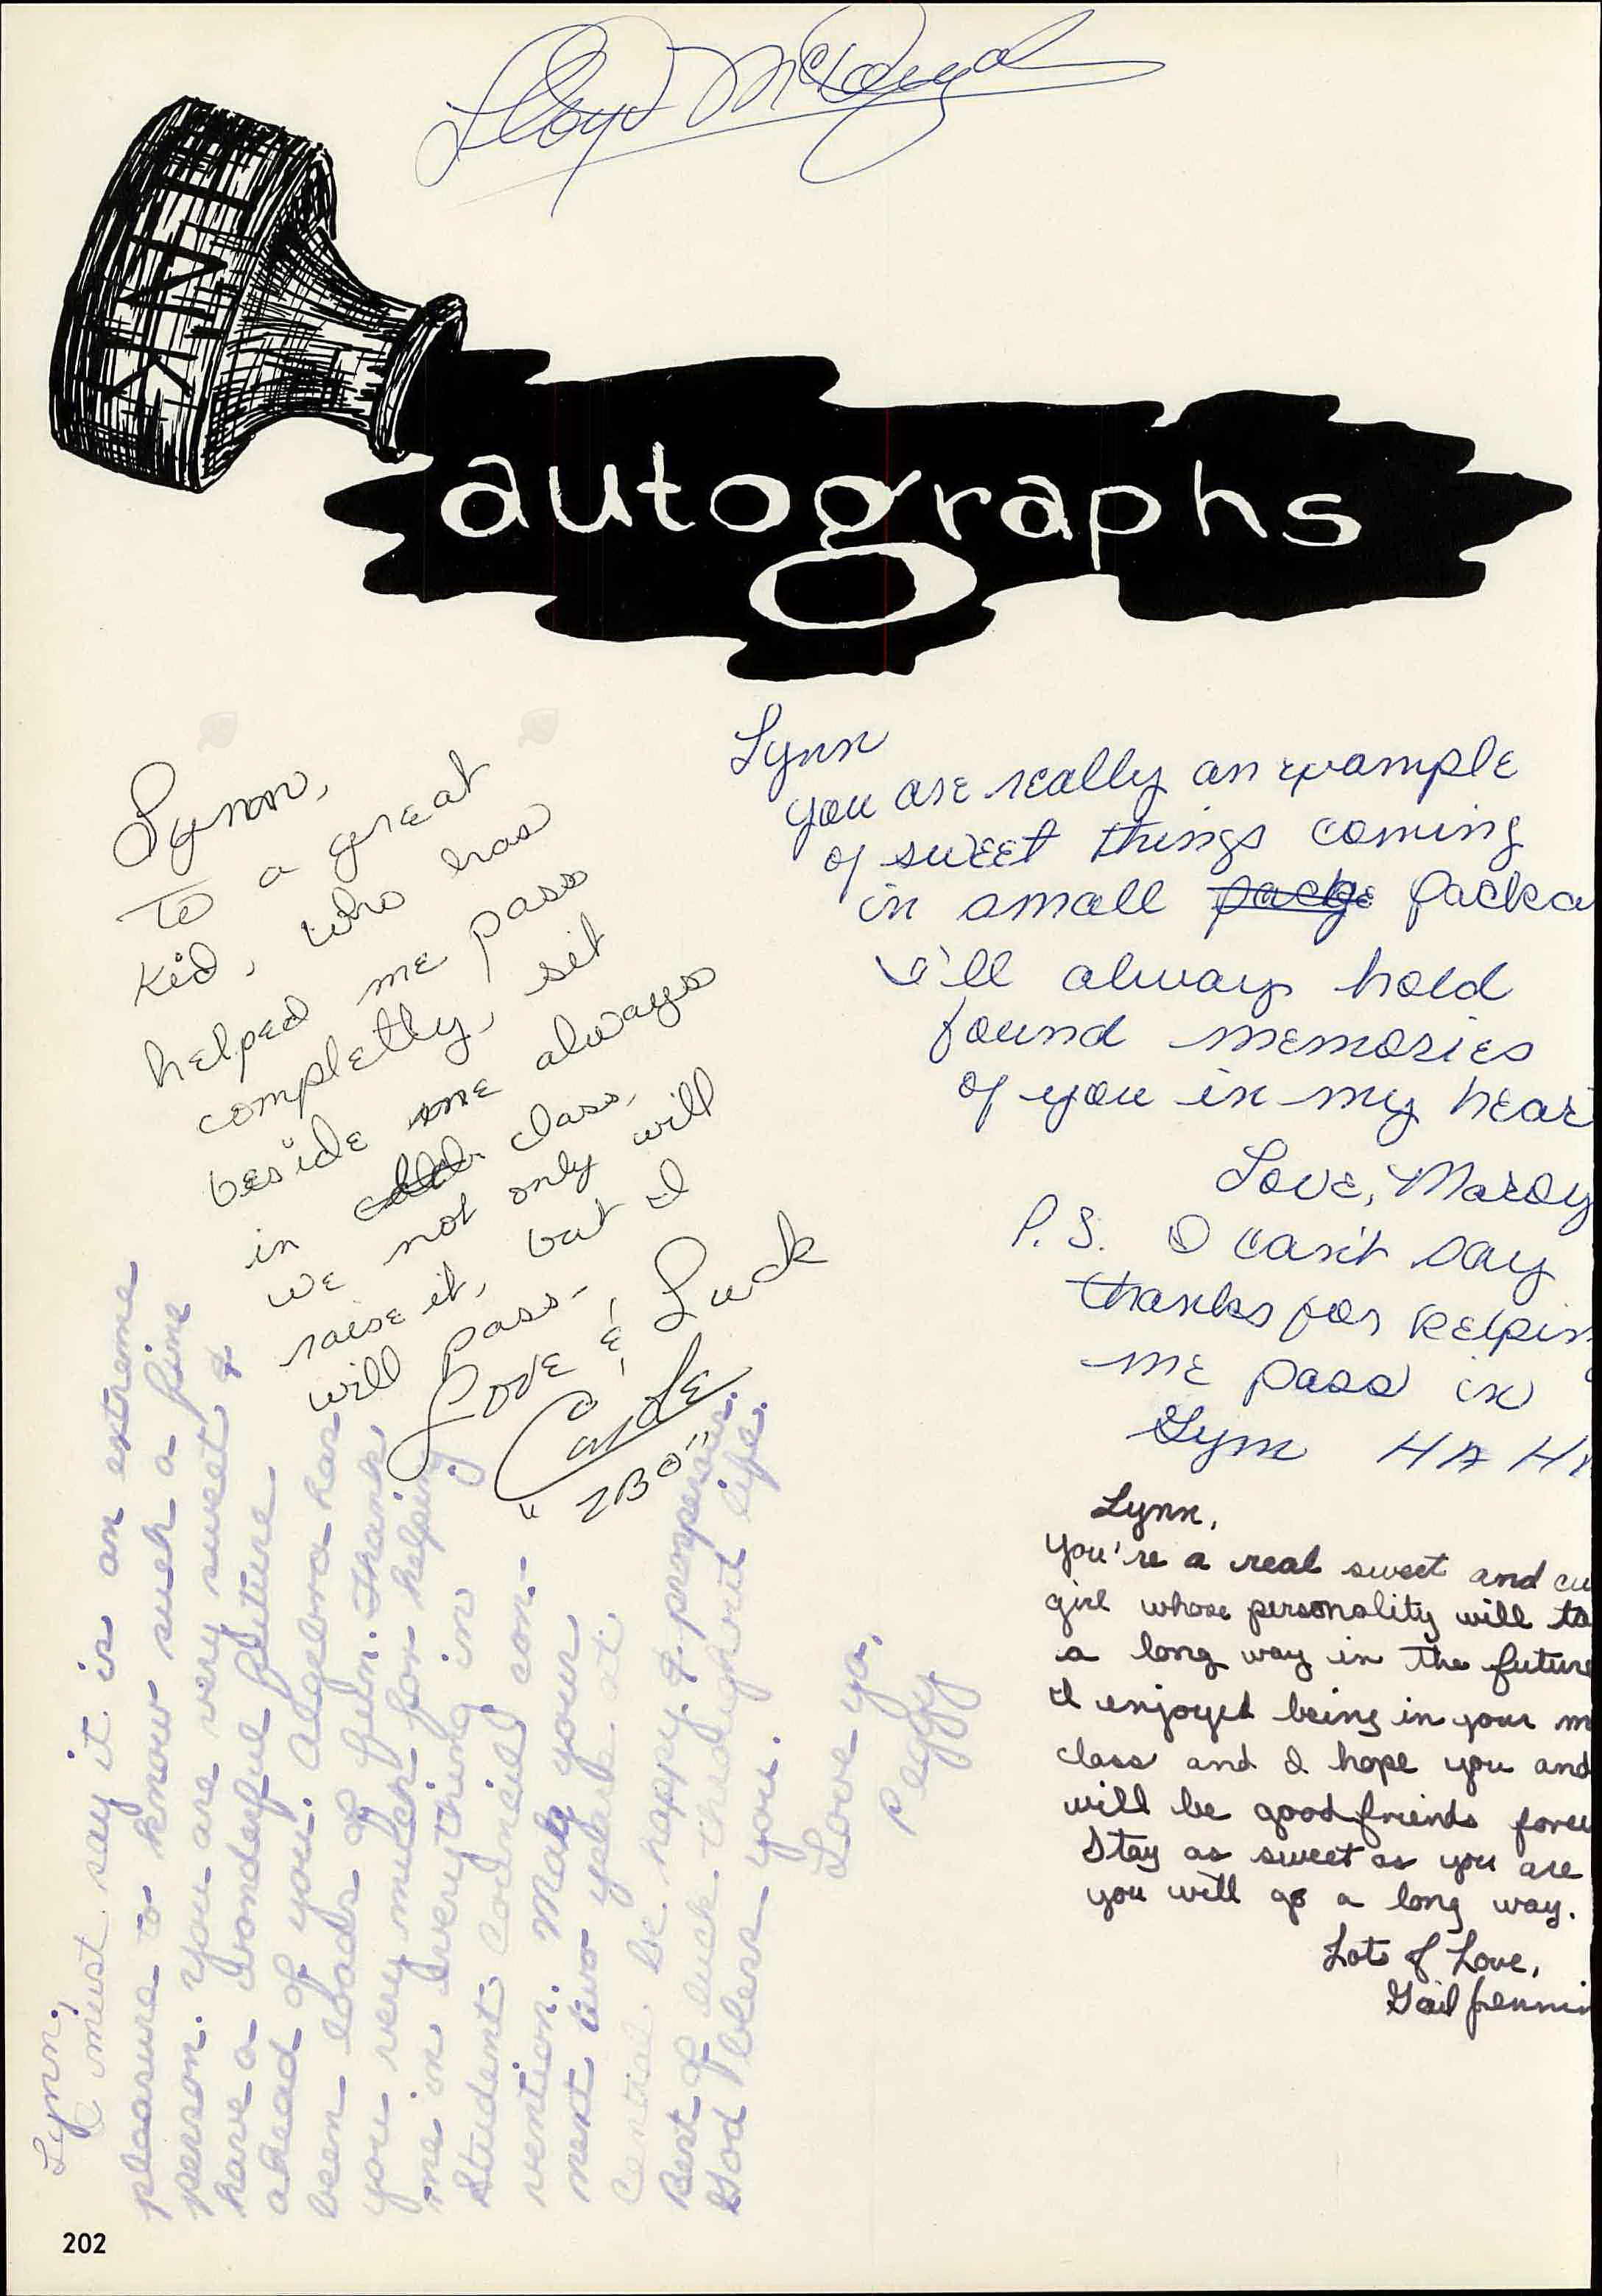 Lloyd McDougal
INK
autographs
Lynn,
To a great
kid, who has
helped me pass
completly, sit
beside me always
in class,
we not only will
raise it, but I
will pass-
Love & Luck
Carole
"ZBO"
Lynn
you are really an example
of sweet things coming
in small packe packa
I'll always hold
found memories
of you in my hear
Love, Mardy
P.S. I can't say
thanks for helpin
me pass in
Gym HA HA
Lynn,
You're a real sweet and cu
girl whose personality will ta
a long way in the future
I enjoyed being in your m
class and I hope you and
will be good friends forev
Stay as sweet as you are
you will go a long way.
Lots of Love,
Gail Jennin
Lynn,
I must say it is an extreme
pleasure to know such a fine
person. You are very sweet &
have a wonderful future
ahead of you. Algebra has
been loads of fun. Thank
you very much for helping
me in everything in
Student Council con-
vention. May your
next two years at
Central be happy & prosperous.
Best of luck throughout life.
God bless you.
Love ya,
Peggy
202